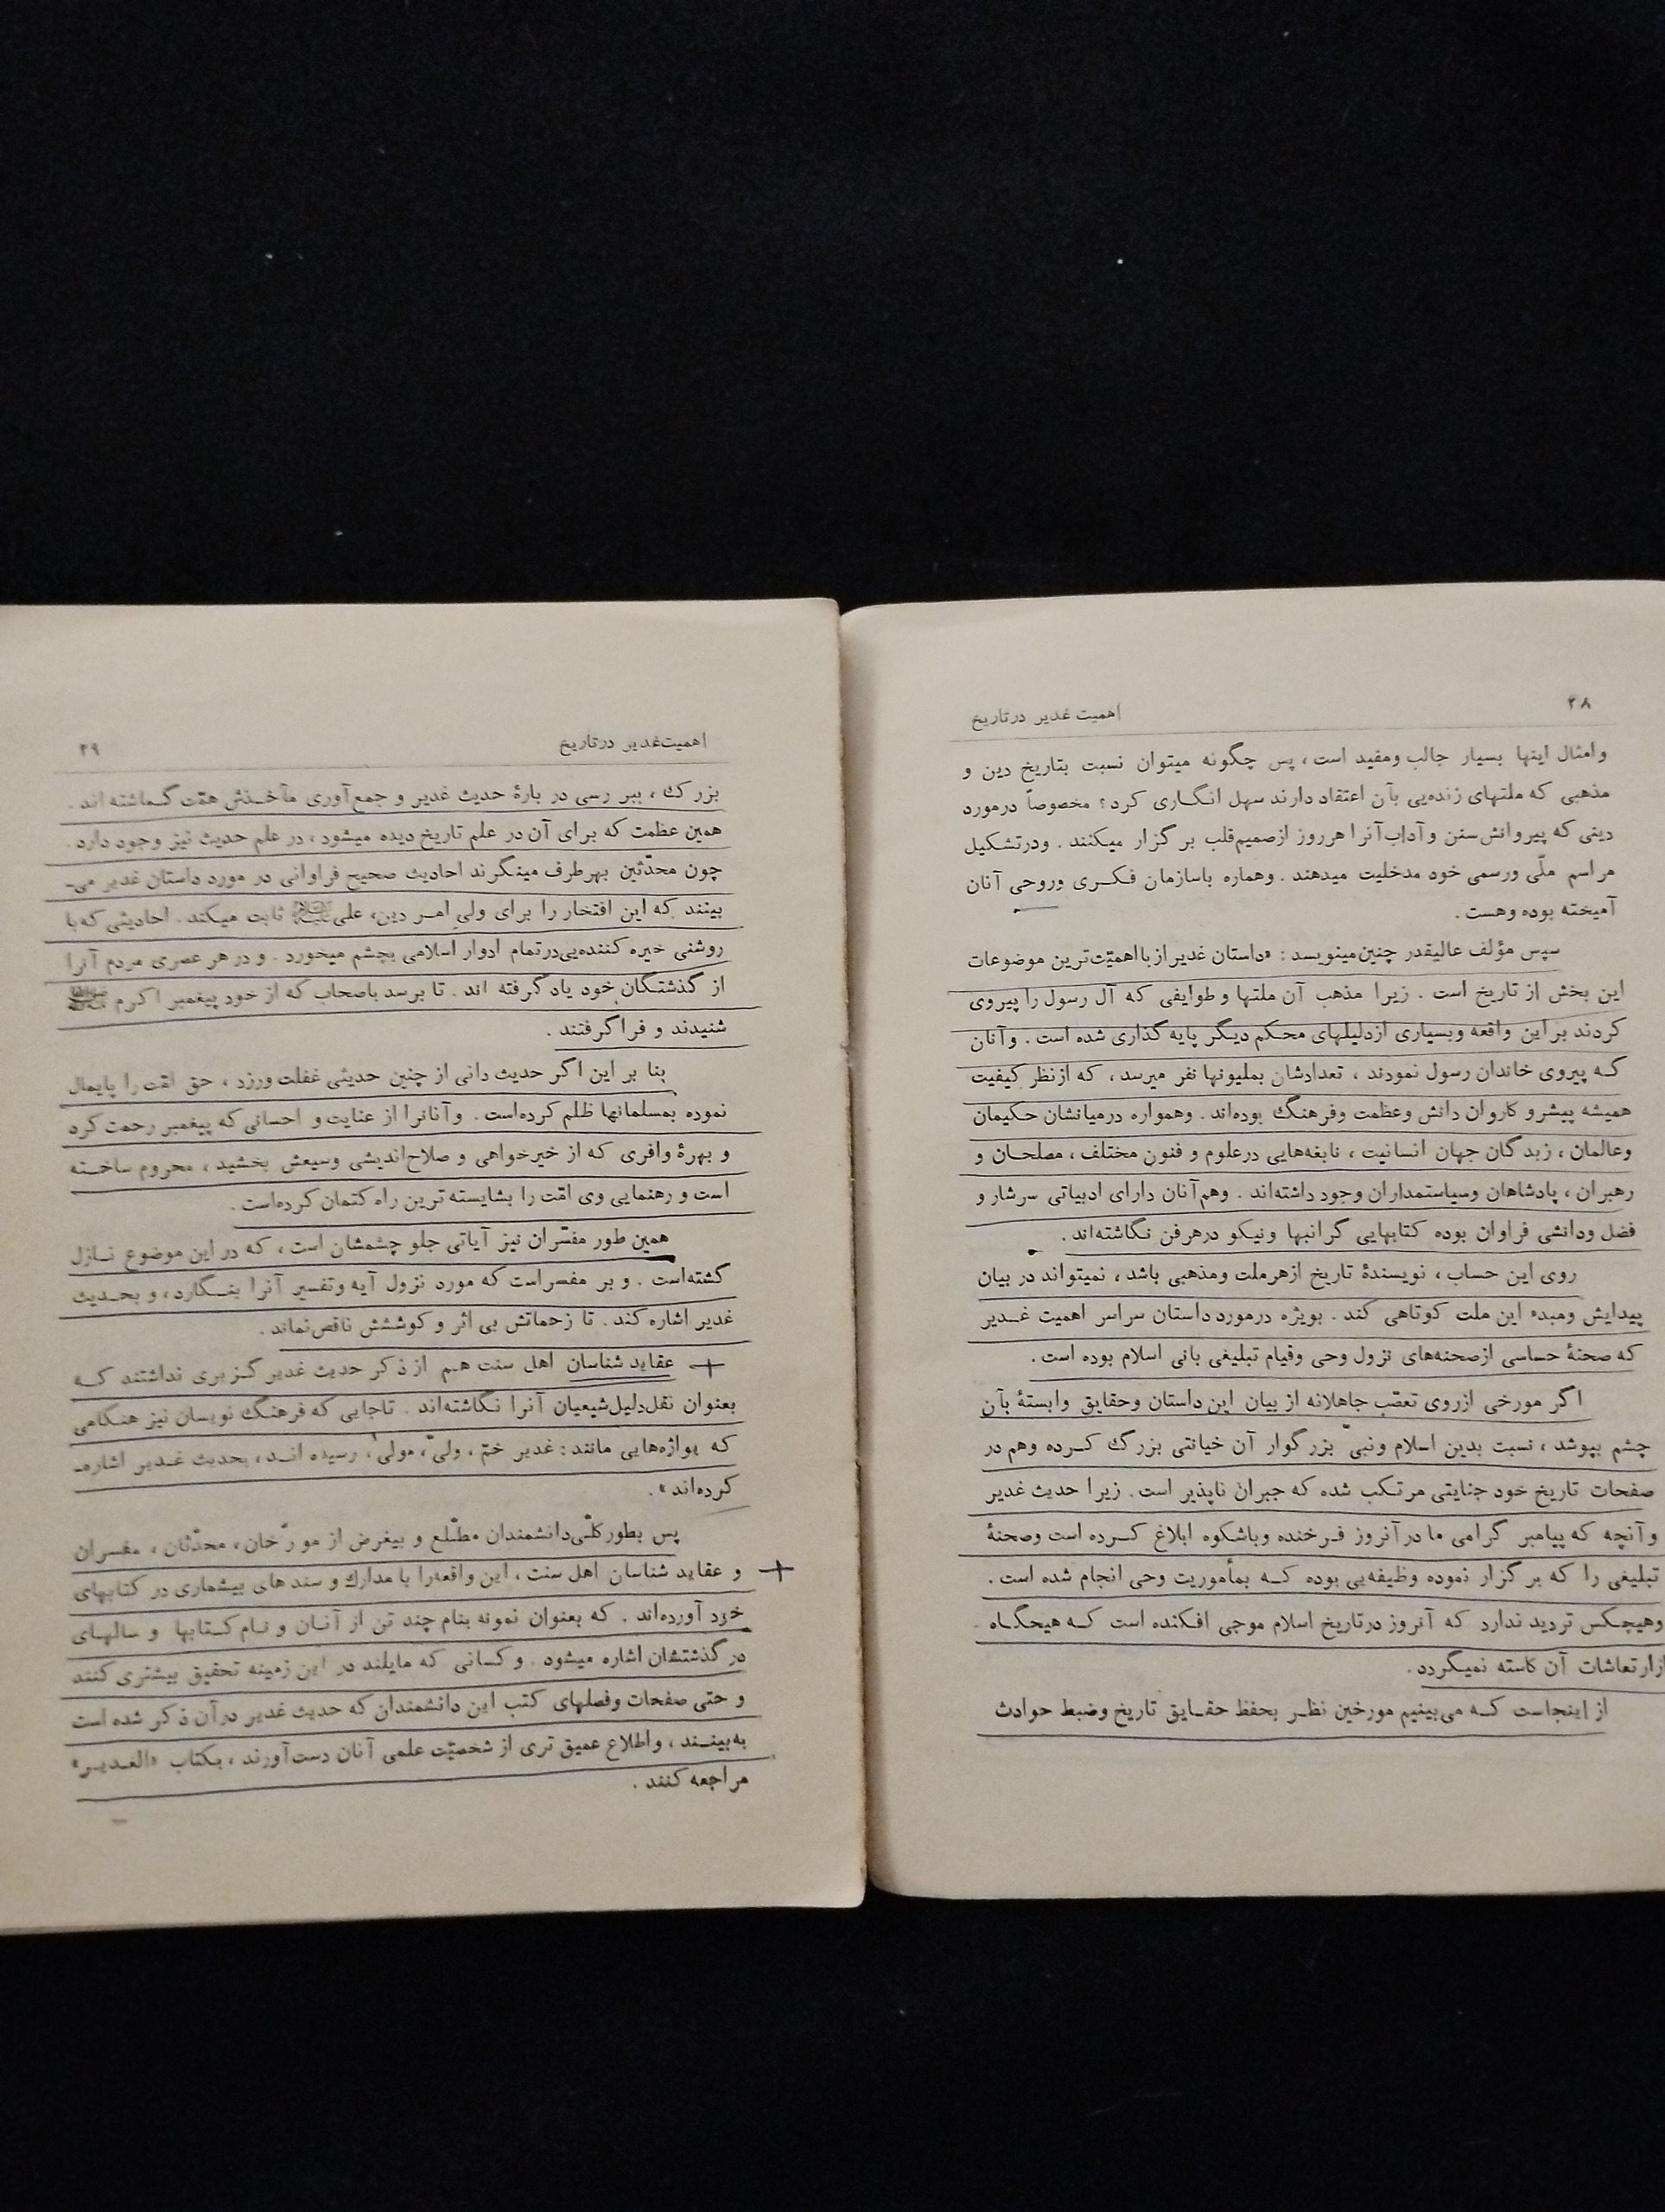 ۲۸
اهمیت غدیر در تاریخ
وامثال اینها بسیار جالب ومفید است، پس چگونه میتوان نسبت بتاریخ دین و
مذهبی که ملتهای زنده‌یی بآن اعتقاد دارند سهل انگاری کرد؟ مخصوصاً درمورد
دینی که پیروانش‌سنن وآداب‌آنرا هرروز ازصمیم‌قلب برگزار میکنند. ودرتشکیل
مراسم ملّی ورسمی خود مدخلیت میدهند. وهماره باسازمان فکری وروحی آنان
آمیخته بوده وهست.
سپس مؤلف عالیقدر چنین‌مینویسد: «داستان غدیراز بااهمیّت‌ترین موضوعات
این بخش از تاریخ است. زیرا مذهب آن ملتها وطوایفی که آل رسول را پیروی
کردند براین واقعه وبسیاری ازدلیلهای محکم دیگر پایه گذاری شده است. وآنان
که پیروی خاندان رسول نمودند، تعدادشان بملیونها نفر میرسد، که ازنظر کیفیت
همیشه پیشرو کاروان دانش وعظمت وفرهنگ بوده‌اند. وهمواره درمیانشان حکیمان
وعالمان، زبدگان جهان انسانیت، نابغه‌هایی درعلوم و فنون مختلف، مصلحان و
رهبران، پادشاهان وسیاستمداران وجود داشته‌اند. وهم‌آنان دارای ادبیاتی سرشار و
فضل ودانشی فراوان بوده کتابهایی گرانبها ونیکو درهرفن نگاشته‌اند.
روی این حساب، نویسندهٔ تاریخ ازهرملت ومذهبی باشد، نمیتواند در بیان
پیدایش ومبدء این ملت کوتاهی کند. بویژه درمورد داستان سراسر اهمیت غدیر
که صحنهٔ حساسی ازصحنه‌های نزول وحی وقیام تبلیغی بانی اسلام بوده است.
اگر مورخی ازروی تعصّب جاهلانه از بیان این داستان وحقایق وابستهٔ بآن
چشم بپوشد، نسبت بدین اسلام ونبیّ بزرگوار آن خیانتی بزرگ کرده وهم در
صفحات تاریخ خود جنایتی مرتکب شده که جبران ناپذیر است. زیرا حدیث غدیر
وآنچه که پیامبر گرامی ما درآنروز فرخنده وباشکوه ابلاغ کرده است وصحنهٔ
تبلیغی را که برگزار نموده وظیفه‌یی بوده که بمأموریت وحی انجام شده است.
وهیچکس تردید ندارد که آنروز درتاریخ اسلام موجی افکنده است که هیچگاه
ازارتعاشات آن کاسته نمیگردد.
از اینجاست که می‌بینیم مورخین نظر بحفظ حقایق تاریخ وضبط حوادث
اهمیت‌غدیر درتاریخ
۲۹
بزرگ، ببررسی در بارهٔ حدیث غدیر و جمع‌آوری مآخذش همّت گماشته‌اند.
همین عظمت که برای آن در علم تاریخ دیده میشود، در علم حدیث نیز وجود دارد.
چون محدّثین بهرطرف مینگرند احادیث صحیح فراوانی در مورد داستان غدیر می-
بینند که این افتخار را برای ولی امر دین، علی علیه‌السلام ثابت میکند. احادیثی که‌با
روشنی خیره کننده‌یی‌درتمام ادوار اسلامی بچشم میخورد. و در هر عصری مردم آنرا
از گذشتگان خود یاد گرفته اند. تا برسد باصحاب که از خود پیغمبر اکرم
شنیدند و فراگرفتند.
بنا بر این اگر حدیث دانی از چنین حدیثی غفلت ورزد، حق امّت را پایمال
نموده بمسلمانها ظلم کرده‌است. وآنانرا از عنایت و احسانی که پیغمبر رحمت کرد
و بهرهٔ وافری که از خیرخواهی و صلاح‌اندیشی وسیعش بخشید، محروم ساخته
است و رهنمایی وی امّت را بشایسته ترین راه کتمان کرده‌است.
همین طور مفسّران نیز آیاتی جلو چشمشان است، که در این موضوع نازل
گشته‌است. و بر مفسراست که مورد نزول آیه وتفسیر آنرا بنگارد، و بحدیث
غدیر اشاره کند. تا زحماتش بی اثر و کوششش ناقص‌نماند.
عقاید شناسان اهل سنت هم از ذکر حدیث غدیر گزیری نداشتند که
بعنوان نقل‌دلیل‌شیعیان آنرا نگاشته‌اند. تاجایی که فرهنگ نویسان نیز هنگامی
که بواژه‌هایی مانند: غدیر خمّ، ولیّ، مولی، رسیده اند، بحدیث غدیر اشاره-
کرده‌اند».
پس بطورکلّی‌دانشمندان مطّلع و بیغرض از مورّخان، محدّثان، مفسران
و عقاید شناسان اهل سنت، این واقعه‌را با مدارک و سند های بیشماری در کتابهای
خود آورده‌اند. که بعنوان نمونه بنام چند تن از آنان و نام کتابها و سالهای
درگذشتشان اشاره میشود. و کسانی که مایلند در این زمینه تحقیق بیشتری کنند
و حتی صفحات وفصلهای کتب این دانشمندان که حدیث غدیر درآن ذکر شده است
به‌بینند، واطلاع عمیق تری از شخصیّت علمی آنان دست‌آورند، بکتاب «الغدیر»
مراجعه کنند.